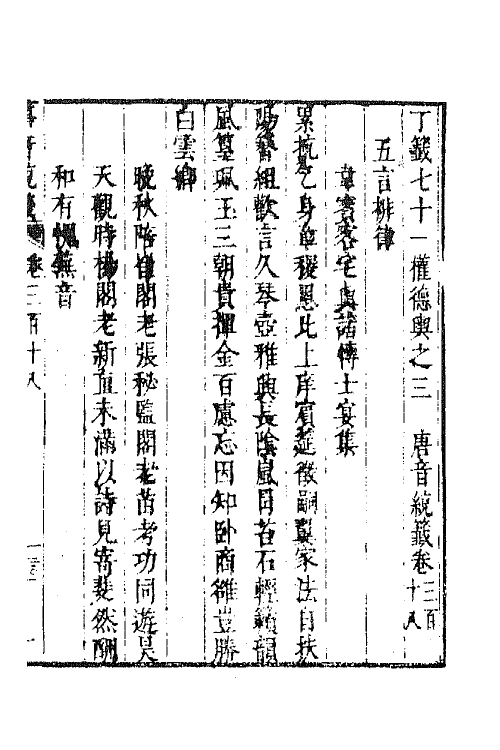 丁籤七十一權德輿之三　唐音統籤卷三百十八
五言排律
韋賓客宅與諸博士宴集
累抗乞身章恩比上庠賓筵徵嗣家法自扶
陽簪組歡言久琴壺雅興長陰嵐冒苔石輕籟韻
風篁珮玉三朝貴揮金百慮忘因知臥商雒豈勝
白雲鄉
晚秋陪崔閣老張秘監閣老苗考功同遊昊
天觀時楊閣老新直未滿以詩見寄斐然酬
和有愧蕪音
唐音統籤　卷三百十八　一